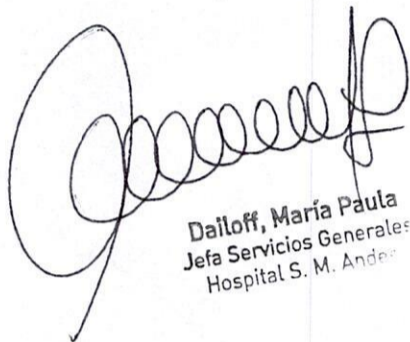 Dailoff, María Paula
Jefa Servicios Generales
Hospital S. M. Andes